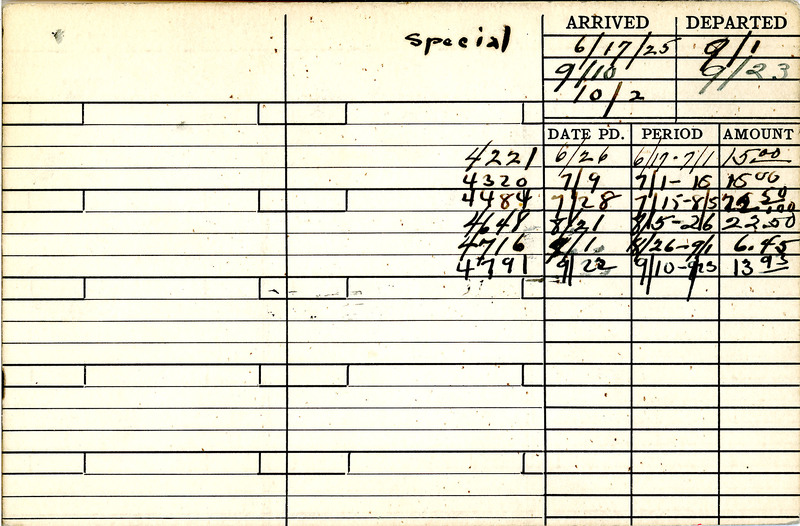 ARRIVED DEPARTED
Special 6/17/25 9/1
9/10 9/23
10/2
DATE PD. PERIOD AMOUNT
4221 6/26 6/17-7/1 15.00
4320 7/9 7/1-15 15 00
4484 7/28 7/15-8/5
4648 8/21 8/5-26 22.50
4716 9/1 8/26-9/1 6.45
4791 9/22 9/10-9/23 13 95